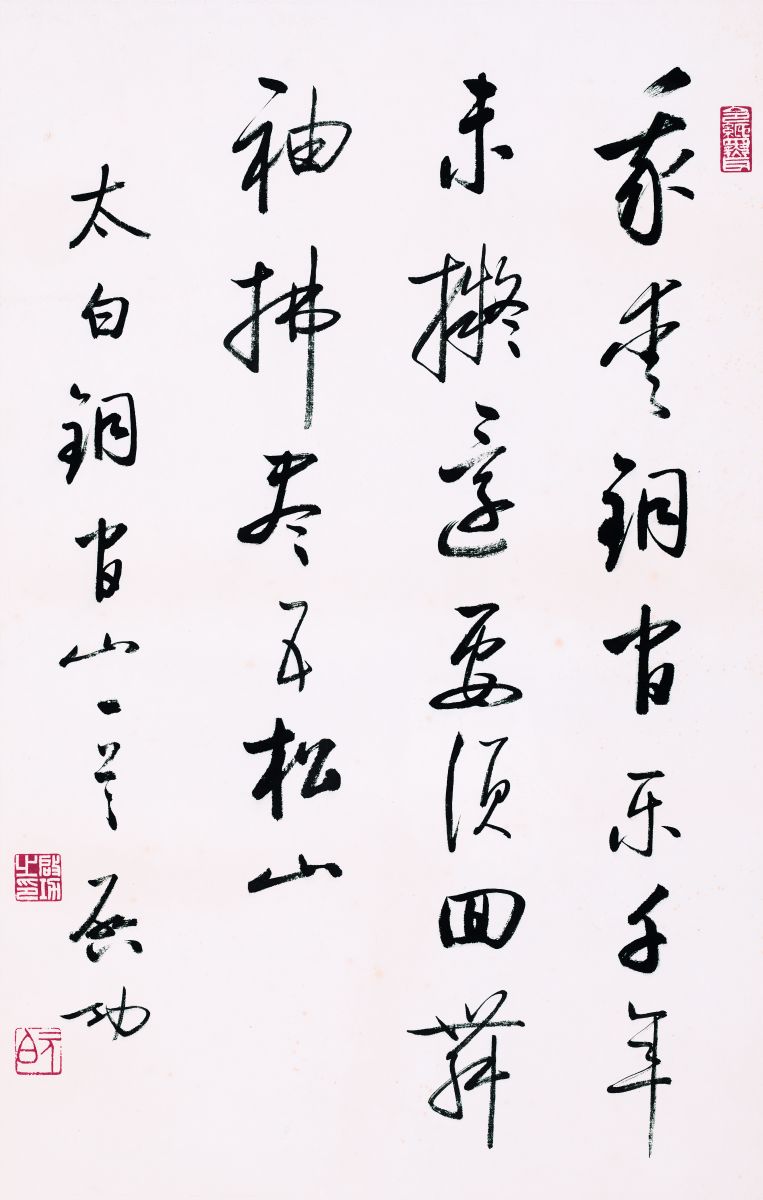 我爱铜官乐千年
未拟还要须回舞
袖拂尽五松山
太白铜官山一首 启功
启功之印
元白